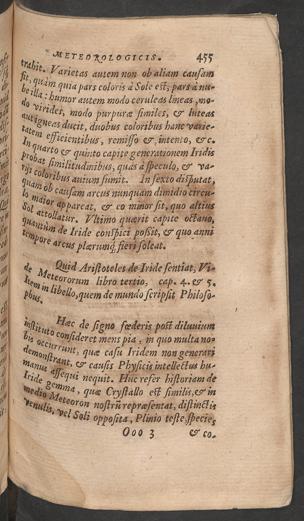 METEOROLOGICIS. 455
trahit. Varietas autem non ob aliam causam
fit, quàm quia pars coloris à Sole est; pars à nu-
be illa: humor autem modo ceruleas lineas, mo-
do virides, modo purpuræ similes, & luteas
aut igneas ducit, duobus coloribus hanc varie-
tatem efficientibus, remisso & intento, &c.
In quarto & quinto capite generationem Iridis
probat similitudinibus, quas à speculo, & va-
rijs coloribus auium sumit. In sexto disputat,
quam ob causam arcus nunquam dimidio circu-
lo maior appareat, & eo minor sit, quo altius
Sol attollatur. Vltimo quærit capite octauo,
quantùm de Iride conspici possit, & quo anni
tempore arcus plærumq; fieri soleat.
Quid Aristoteles de Iride sentiat, Vi-
de Meteororum libro tertio, cap. 4. & 5.
Item in libello, quem de mundo scripsit Philoso-
phus.
Hæc de signo fœderis post diluuium
instituto consideret mens pia, in quo multa no-
bis occurrunt, quæ casu Iridem non generari
demonstrant, & causis Physicis intellectus hu-
manus assequi nequit. Huc refer historiam de
Iride gemma, quæ Crystallo est similis, & in
medio Meteoron nostrũ repræsentat, distinctis
venulis, vel Soli opposita, Plinio teste, species
Ooo 3 & co-